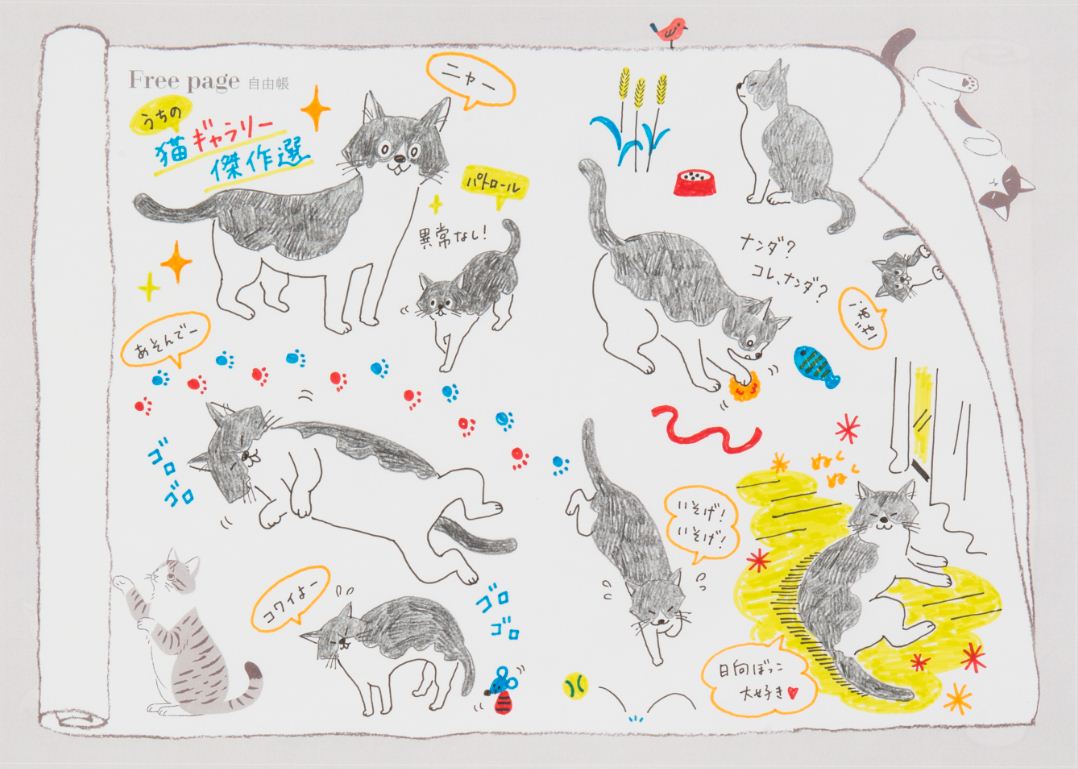 Free page 自由帳
うちの
猫ギャラリー
傑作選
ニャー
パトロール
異常なし!
ナンダ?
コレ、ナンダ?
あそんでー
ゴロ
ゴロ
いそげ!
いそげ!
ぬく
ぬく
コワイよー
ゴロ
ゴロ
日向ぼっこ
大好き